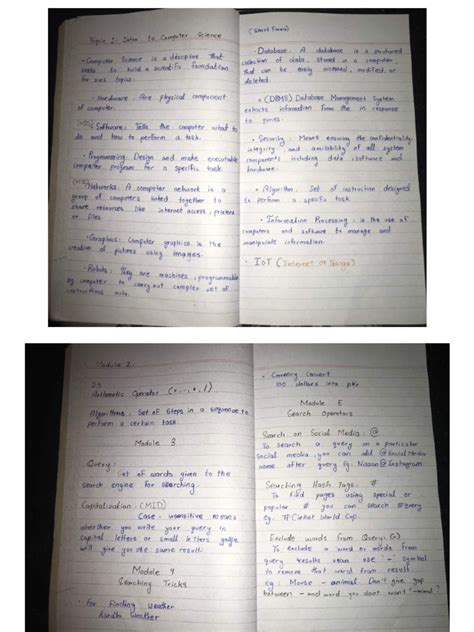 Topic 1:- Intro to Computer Science
• Computer Science is a discipline that
seeks to build a scientific foundation
for such topics.
• Hardware: Are physical component
of computer.
Software: Tells the computer what to
do and how to perform a task.
• Programming: Design and make executable
computer program for a specific task.
Networks: A computer network is a
group of computers linked together to
share resources like internet access, printers
or files.
• Graphics: Computer graphics is the
creation of pictures using images.
• Robots: They are machines, programmable
by computer to carry out complex set of
instructions auto.
(Short Forms)
• Database: A database is a structured
collection of data, stored in a computer,
that can be easily accessed, modified, or
deleted.
• (DBMS) Database Management System
extracts information from the in response
to
• Security: Means ensuring the confidentiality,
integrity and availability of all system
components including data, software and
hardware.
• Algorithm: Set of instruction designed
to perform a specific task.
• Information Processing: is the use of
computers and software to manage and
manipulate information.
• IoT (Internet of Things)
Module 2.
Arithmetic Operator (+, -, *, /)
Algorithms: Set of Steps in a sequence to
perform a certain task.
Module 3
Query:
Set of words given to the
search engine for searching.
Capitalization: (MID)
Case - insensitive means
whether you write your query in
capital letters or small letters
will give you the same result.
Module 4
Searching Tricks
• For finding weather
Karachi weather
• Currency Convert
100 dollars into pkr
Module 5
Search Operators
Search on Social Media: @
To search a query on a particular
social media, you can add @Social Media
name after query Eg. Nissan @ Instagram
Searching Hash Tags: #
To find pages using special or
popular # you can search #query
eg. # Cricket World Cup.
Exclude words from Query: (-)
To exclude a word or words from
query results then use '-' symbol
to remove that word from result
eg: Mouse - animal. Don't give gap
between - and word you dont want '-animal'